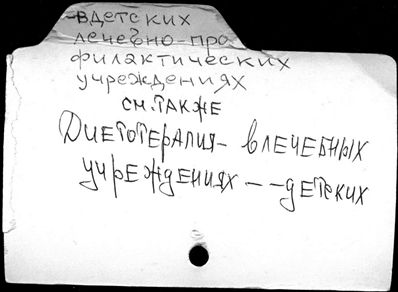 -в детских
лечевно-про
филактических
учреждениях
см. также
Диетотерапия- в лечебных
учреждениях - -детских